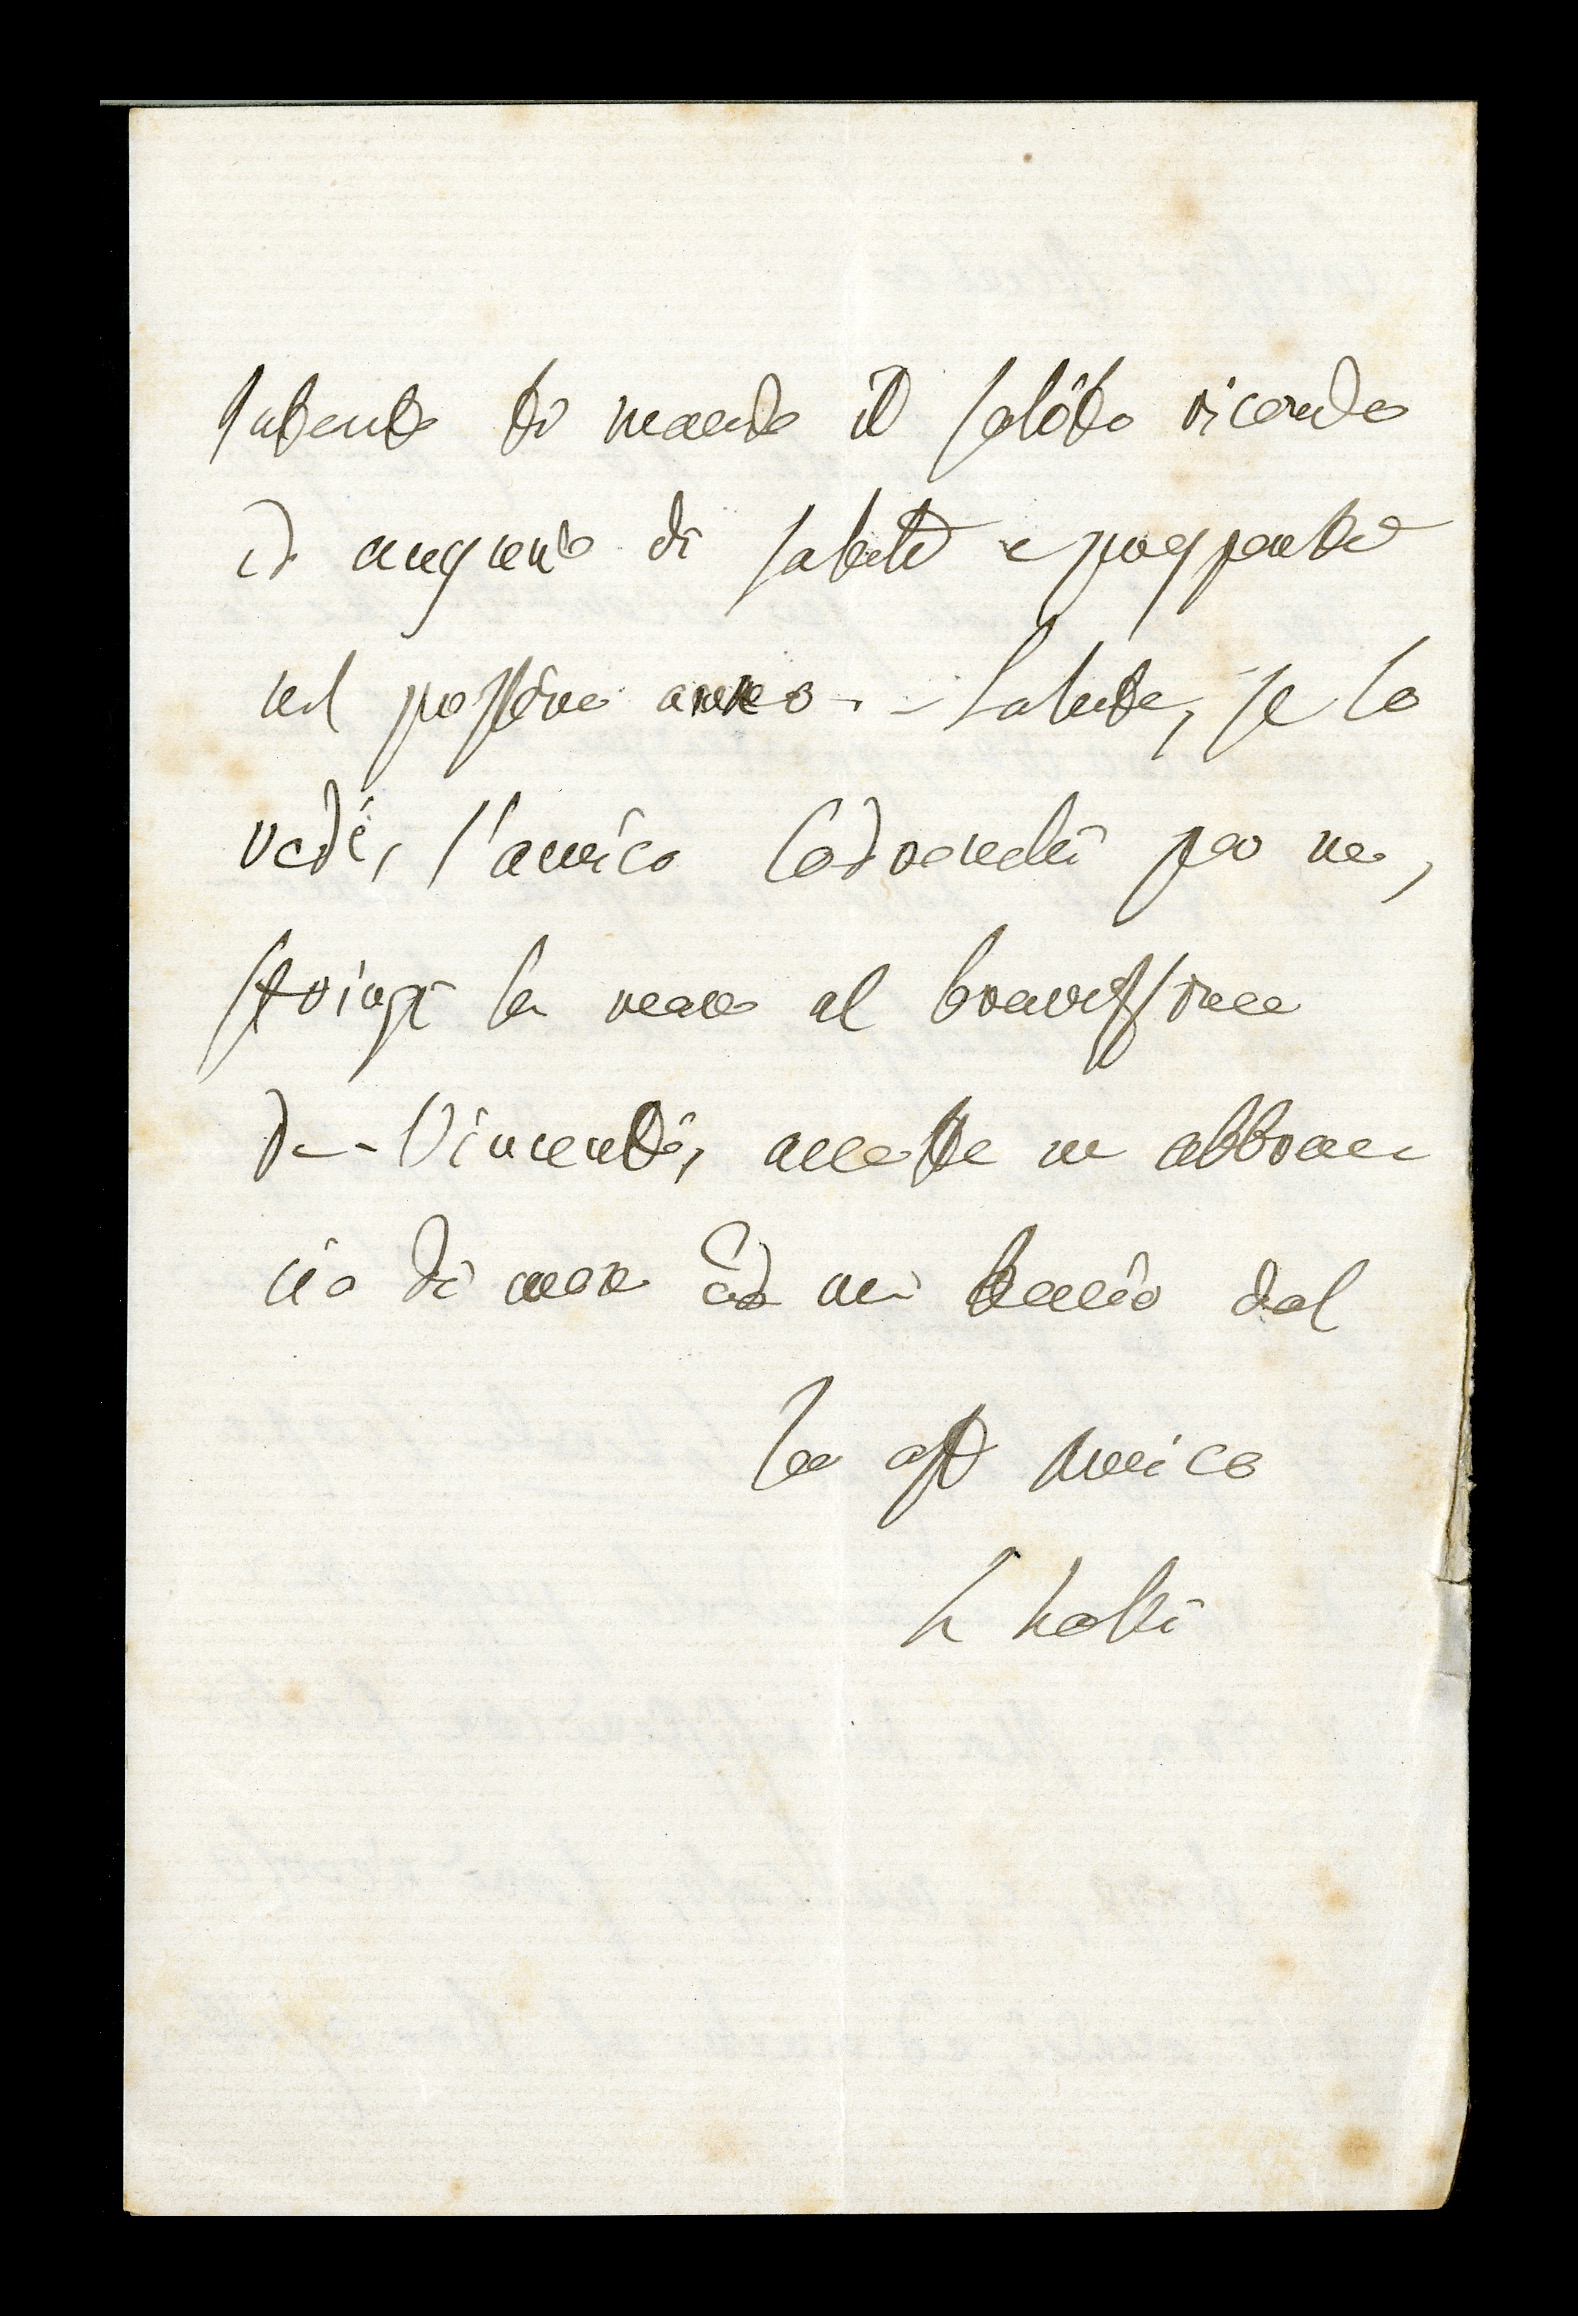 Intanto ti mando il solito ricordo
ed augurio di salute e prosperità
nel prossimo anno. - Saluta, se lo
vedi, l'amico per me,
stringi la mano al bravissimo
De-Vincenti, accetta un abbrac
cio di cuore ed un bacio dal
tuo aff amico